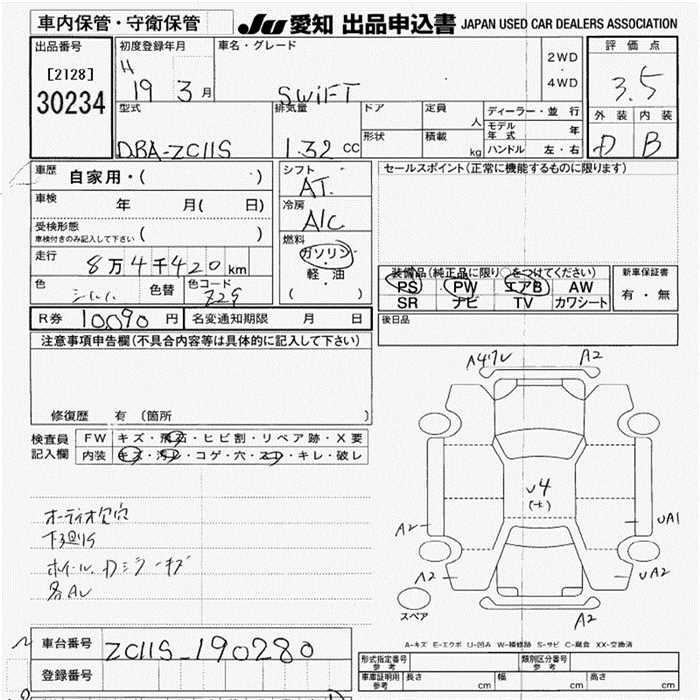 車内保管・守衛保管
JU 愛知 出品申込書 JAPAN USED CAR DEALERS ASSOCIATION
出品番号
[2128]
30234
初度登録年月
H 19 3 月
車名・グレード
SWiFT
2WD
・
4WD
評価点
3.5
外装 内装
D B
型式
DBA-ZC11S
排気量
1.32 cc
ドア
形状
定員 人
積載 kg
ディーラー・並行
モデル年式 年
ハンドル 左・右
車歴 自家用・( )
車検 年 月( 日)
受検形態
車検付きのみ記入して下さい ( )
走行
8万4千420 km
色 色替
色コード
Z2S
シフト
AT
冷房
A/C
燃料
ガソリン
・
軽・油
( )
セールスポイント(正常に機能するものに限ります)
装備品(純正品に限り○をつけてください)
PS PW エアB AW
SR ナビ TV カワシート
新車保証書
有・無
後日品
R券 10090 円 名変通知期限 月 日
注意事項申告欄(不具合内容等は具体的に記入して下さい)
修復歴 有 (箇所 )
検査員記入欄
FW キズ・飛石・ヒビ割・リペア跡・X要
内装 キズ・汚レ・コゲ・穴・スレ・キレ・破レ
オーディオ欠穴
下廻りS
ホイール、Dミラーキズ
各AU
A2
U4
A2
UA1
A2
UA2
A2
スペア
A-キズ E-エクボ U-凹み W-補修跡 S-サビ C-腐食 XX-交換済
車台番号 ZC11S-190280
登録番号
形式指定番号 参考
類別区分番号 参考
車庫証明用 参考 長さ cm 幅 cm 高さ cm